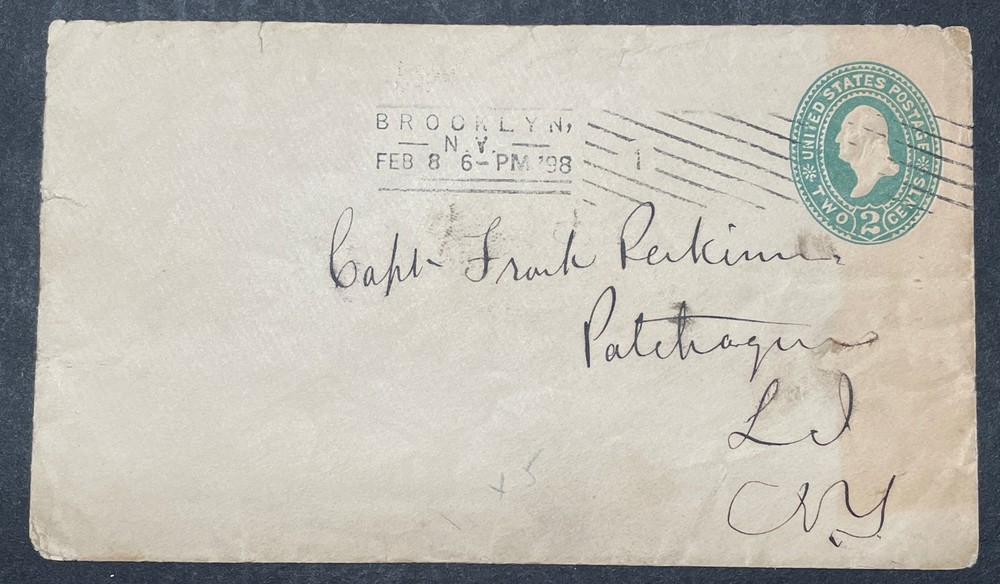 BROOKLYN,
N.Y.
FEB 8 6-PM '98
1
UNITED STATES POSTAGE
TWO 2 CENTS
Capt Frank
Patchogue
L I
N.Y.
+5